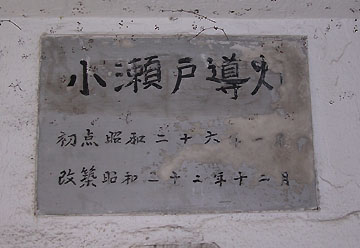 小瀬戸導灯
初点昭和二十六 一
改築昭和三十三年十二月